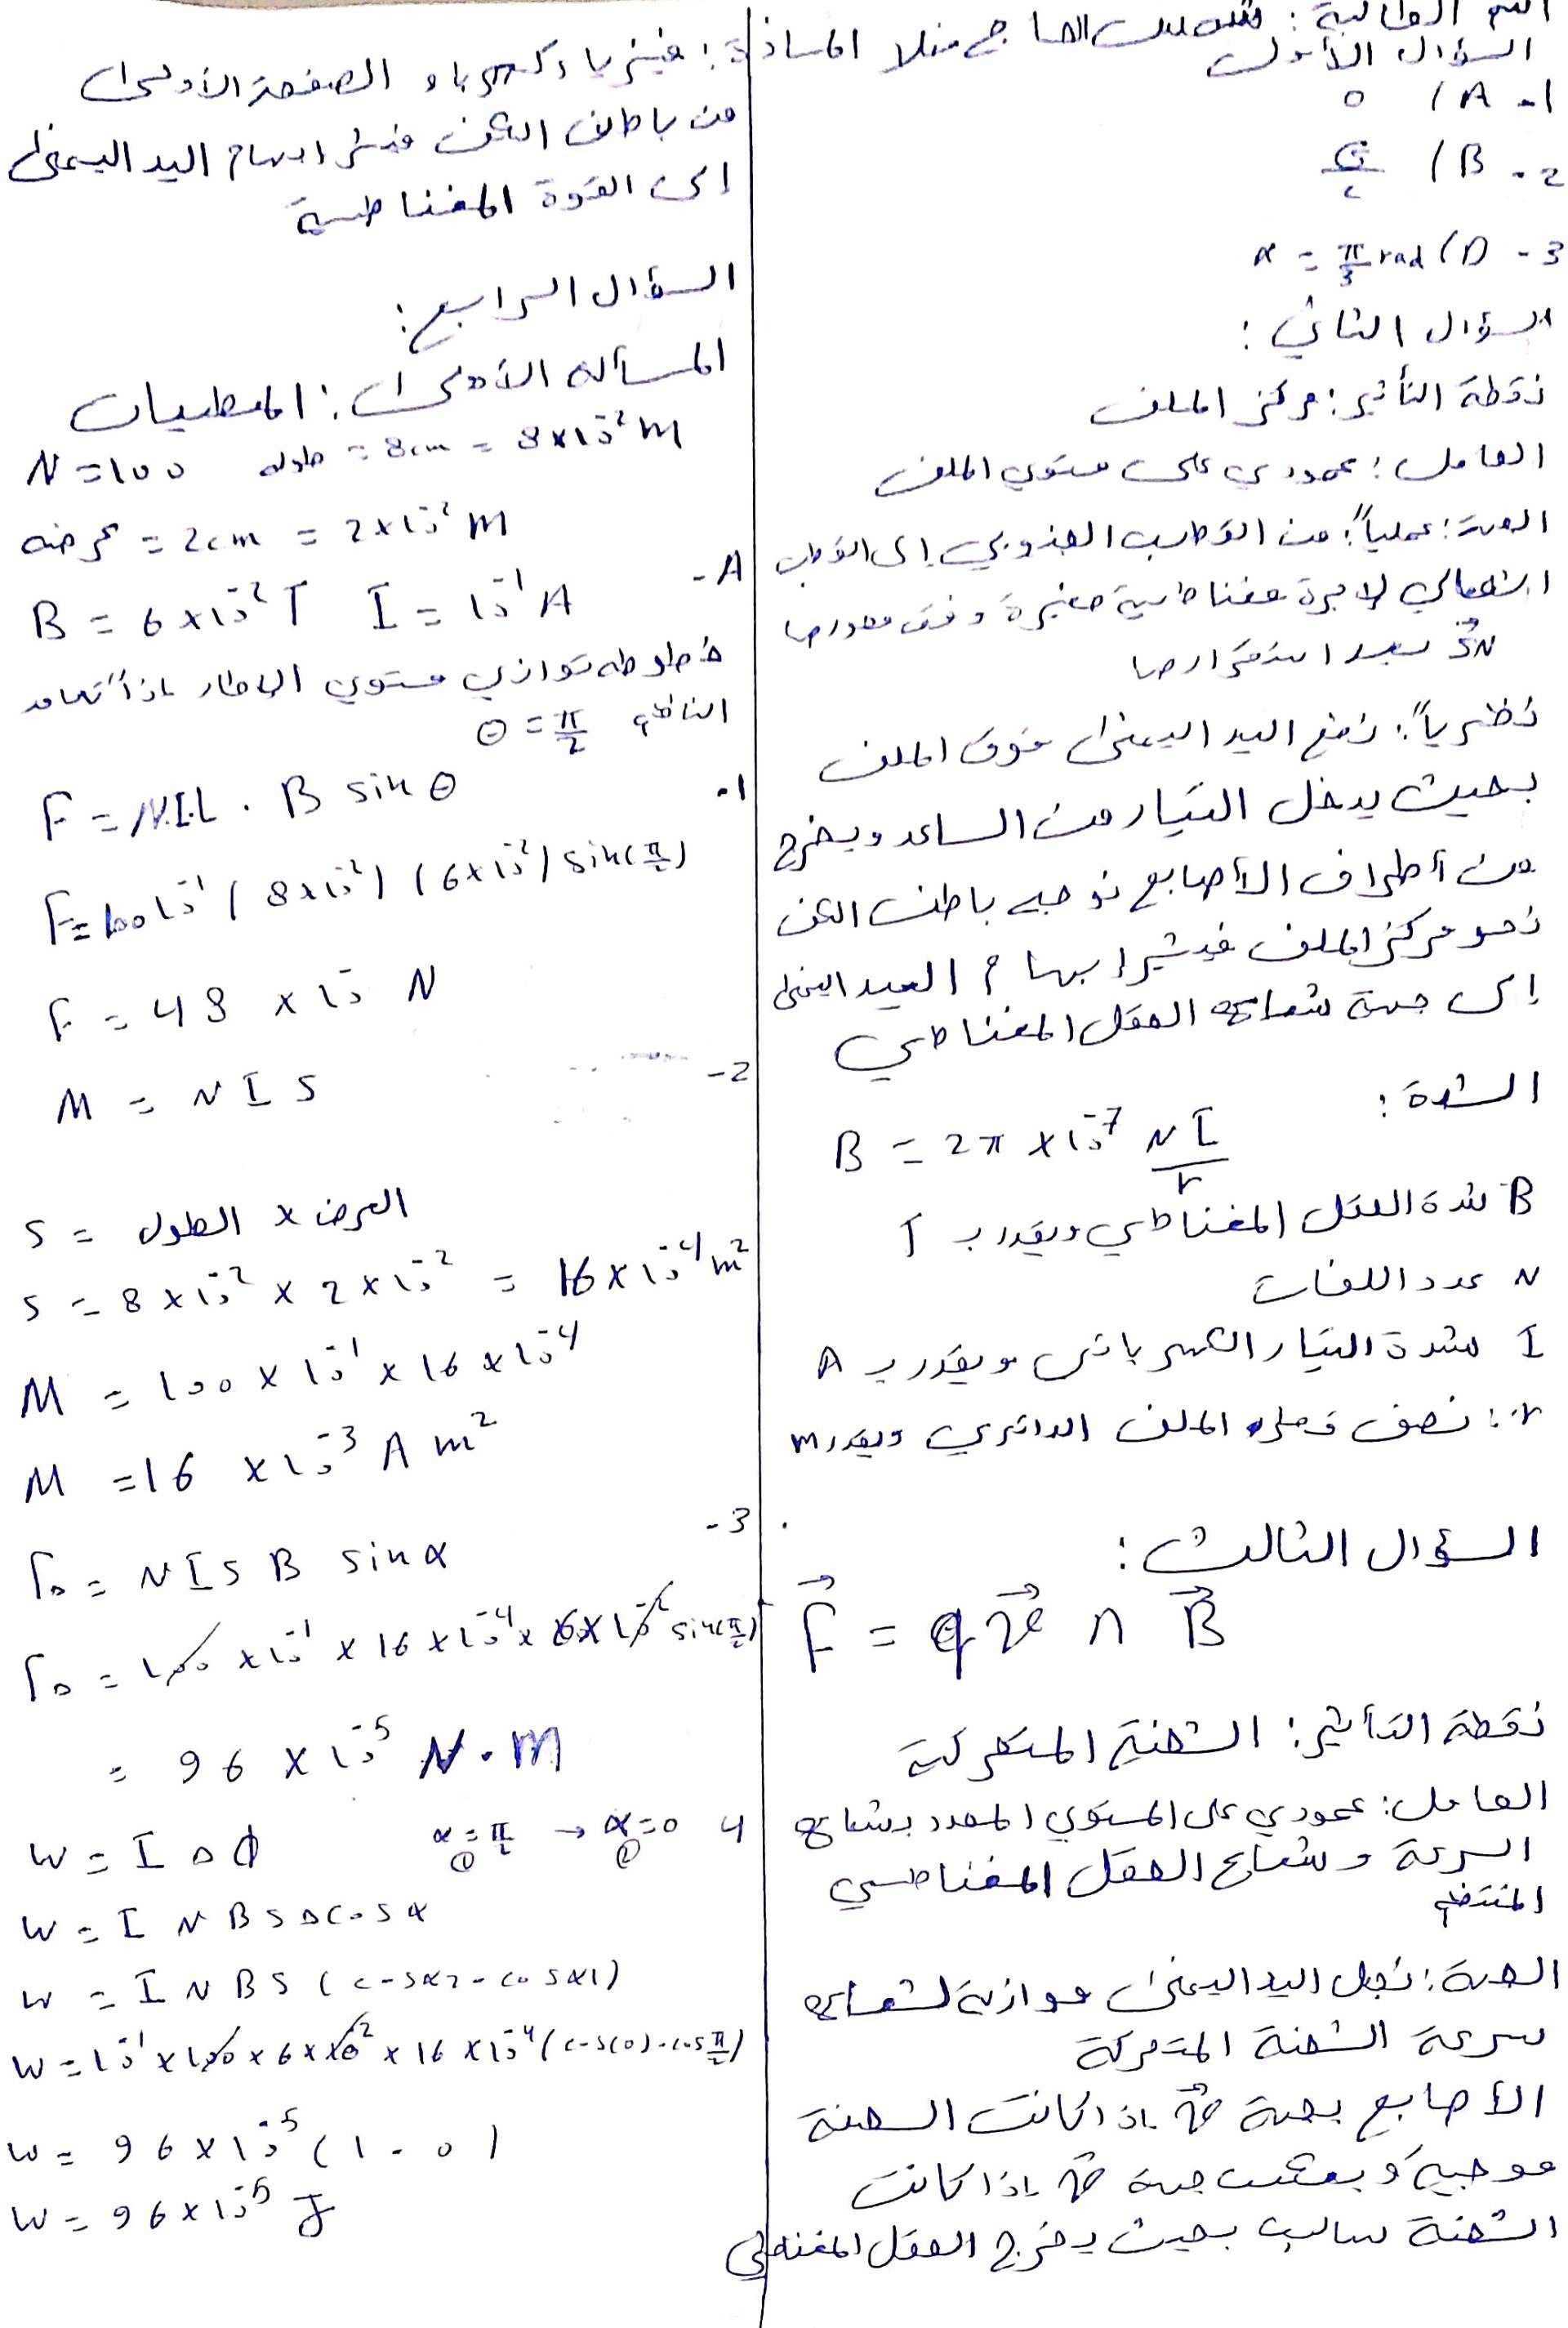 اسم الطالبة: الحاج منلا المادة: فيزيا وكهرباء الصفحة الأولى
السؤال الأول
1- A) 0
2- B)
3- D) α = π/3 rad
السؤال الثاني:
نقطة التأثير: مركز الملف
الحامل: عمودي على مستوي الملف
الجهة: عملياً: من القطب الجنوبي إلى القطب
الشمالي لإبرة مغناطيسية صغيرة وفق محورها
بعد استقرارها
نظرياً: نضع اليد اليمنى فوق الملف
بحيث يدخل التيار من الساعد ويخرج
من أطراف الأصابع نوجه باطن الكف
نحو مركز الملف فيشير ابهام اليد اليمنى
إلى جهة شعاع الحقل المغناطيسي
الشدة:
B = 2π × 10⁻⁷ NI/r
B شدة الحقل المغناطيسي ويقدر بـ T
N عدد اللفات
I شدة التيار الكهربائي ويقدر بـ A
r: نصف قطر الملف الدائري ويقدر m
السؤال الثالث:
F⃗ = q v⃗ ∧ B⃗
نقطة التأثير: الشحنة المتحركة
الحامل: عمودي على المستوي المحدد بشعاع
السرعة وشعاع الحقل المغناطيسي
المنتظم
الجهة: نجعل اليد اليمنى موازية لشعاع
سرعة الشحنة المتحركة
الأصابع بجهة v⃗ إذا كانت الشحنة
موجبة وبعكس جهة v⃗ إذا كانت
الشحنة سالبة بحيث يخرج الحقل المغناطيسي
من باطن الكف فيشير ابهام اليد اليمنى
إلى القوة المغناطيسية
السؤال الرابع:
المسألة الأولى: المعطيات
N = 100 طوله = 8cm = 8×10⁻² m
عرضه = 2cm = 2×10⁻² m
A- B = 6×10⁻² T I = 10⁻¹ A
خطوطه توازي مستوي الإطار إذاً تعامد
الناظم θ = π/2
1- F = N.I.L . B sin θ
F = 100 10⁻¹ (8×10⁻²) (6×10⁻²) sin(π/2)
F = 48 × 10⁻ N
2- M = N I S
S = الطول × العرض
S = 8×10⁻² × 2×10⁻² = 16×10⁻⁴ m²
M = 100 × 10⁻¹ × 16 × 10⁻⁴
M = 16 × 10⁻³ A m²
3- Γ△ = N I S B sin α
Γ△ = 100 × 10⁻¹ × 16 × 10⁻⁴ × 6 × 10⁻² sin(π/2)
= 96 × 10⁻⁵ N.m
4 W = I △ Φ α₁ = π/2 → α₂ = 0
W = I N B S △cos α
W = I N B S (cos α2 - cos α1)
W = 10⁻¹ × 100 × 6 × 10⁻² × 16 × 10⁻⁴ (cos(0) - cos π/2)
W = 96 × 10⁻⁵ (1 - 0)
W = 96 × 10⁻⁵ J